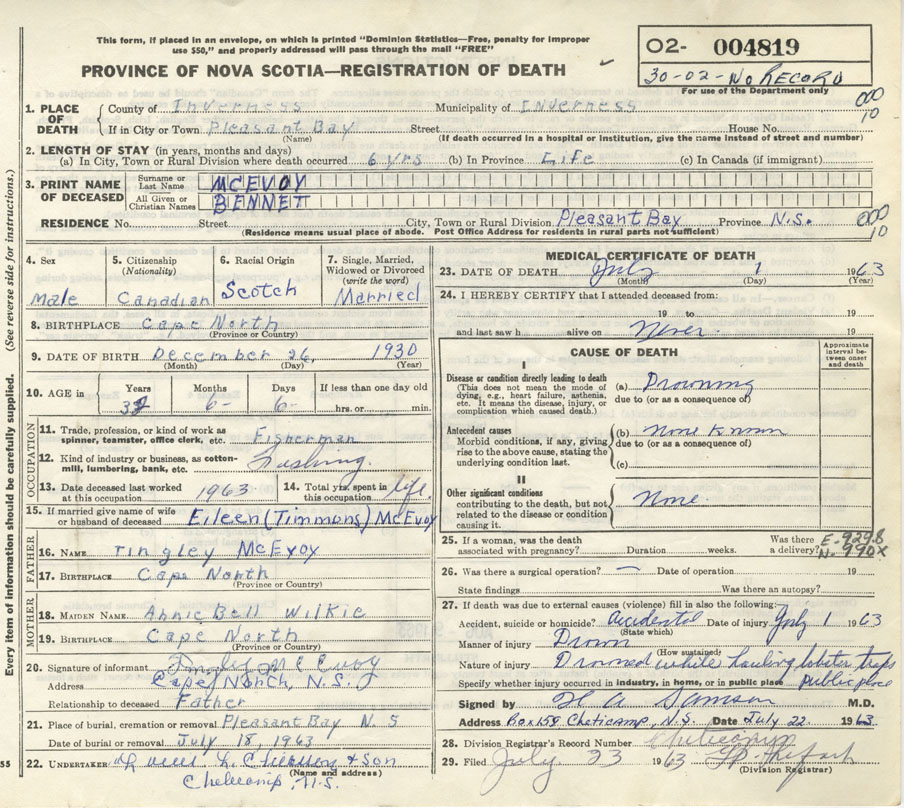 This form, if placed in an envelope, on which is printed "Dominion Statistics—Free, penalty for improper
use $50," and properly addressed will pass through the mail "FREE"
PROVINCE OF NOVA SCOTIA—REGISTRATION OF DEATH
O2- 004819
30-02-No RECORD
For use of the Department only
000
10
1. PLACE OF DEATH County of Inverness Municipality of Inverness
If in City or Town Pleasant Bay Street House No.
(Name) (If death occurred in a hospital or institution, give the name instead of street and number)
2. LENGTH OF STAY (in years, months and days)
(a) In City, Town or Rural Division where death occurred 6 yrs (b) In Province Life (c) In Canada (if immigrant)
3. PRINT NAME OF DECEASED
Surname or Last Name MCEVOY
All Given or Christian Names BENNETT
RESIDENCE No. Street City, Town or Rural Division Pleasant Bay Province N.S.
(Residence means usual place of abode. Post Office Address for residents in rural parts not sufficient)
000
10
(See reverse side for instructions.)
Every item of information should be carefully supplied.
4. Sex Male
5. Citizenship (Nationality) Canadian
6. Racial Origin Scotch
7. Single, Married, Widowed or Divorced (write the word) Married
8. BIRTHPLACE Cape North
(Province or Country)
9. DATE OF BIRTH December 26, 1930
(Month) (Day) (Year)
10. AGE in Years 32 Months 6 Days 6 If less than one day old hrs. or min.
OCCUPATION
11. Trade, profession, or kind of work as spinner, teamster, office clerk, etc. Fisherman
12. Kind of industry or business, as cotton-mill, lumbering, bank, etc. Fishing.
13. Date deceased last worked at this occupation 1963 14. Total yrs. spent in this occupation life
15. If married give name of wife or husband of deceased Eileen (Timmons) McEvoy
FATHER
16. NAME Tingley McEvoy
17. BIRTHPLACE Cape North
(Province or Country)
MOTHER
18. MAIDEN NAME Annie Bell Wilkie
19. BIRTHPLACE Cape North
(Province or Country)
20. Signature of informant Tingley McEvoy
Address Cape North, N.S.
Relationship to deceased Father
21. Place of burial, cremation or removal Pleasant Bay N.S
Date of burial or removal July 18, 1963
55
22. UNDERTAKER & Son
(Name and address)
Cheticamp, N.S.
MEDICAL CERTIFICATE OF DEATH
23. DATE OF DEATH July 1 1963
(Month) (Day) (Year)
24. I HEREBY CERTIFY that I attended deceased from:
19 to 19
and last saw h alive on Never. 19
CAUSE OF DEATH
Approximate interval between onset and death
I
Disease or condition directly leading to death (a) Drowning
(This does not mean the mode of dying, e.g., heart failure, asthenia, etc. It means the disease, injury, or complication which caused death.)
due to (or as a consequence of)
Antecedent causes (b) None Known
Morbid conditions, if any, giving rise to the above cause, stating the underlying condition last.
due to (or as a consequence of)
(c)
II
Other significant conditions None
contributing to the death, but not related to the disease or condition causing it.
25. If a woman, was the death associated with pregnancy? Duration weeks. Was there a delivery?
E-929.8
N-990X
26. Was there a surgical operation? — Date of operation 19
State findings Was there an autopsy?
27. If death was due to external causes (violence) fill in also the following:
Accident, suicide or homicide? Accidental Date of injury July 1 1963
(State which)
Manner of injury Drown
(How sustained)
Nature of injury Drowned while hauling lobster traps
Specify whether injury occurred in industry, in home, or in public place Public place
Signed by H A Samson M.D.
Address Box 159 Cheticamp, N.S. Date July 22 1963.
28. Division Registrar's Record Number Cheticamp
29. Filed July 23 1963
(Division Registrar)